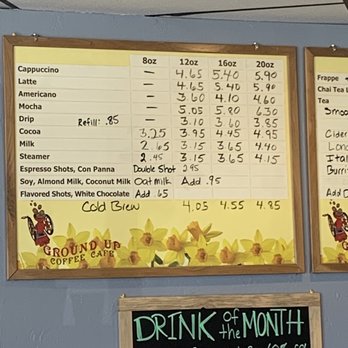 8oz 12oz 16oz 20oz
Cappuccino — 4.65 5.40 5.90
Latte — 4.65 5.40 5.90
Americano — 3.60 4.10 4.60
Mocha — 5.05 5.80 6.30
Drip Refill: .85 — 3.10 3.60 3.85
Cocoa 3.25 3.95 4.45 4.95
Milk 2.65 3.15 3.65 4.40
Steamer 2.45 3.15 3.65 4.15
Espresso Shots, Con Panna Double Shot 2.95
Soy, Almond Milk, Coconut Milk Oatmilk Add .95
Flavored Shots, White Chocolate Add .65
Cold Brew 4.05 4.55 4.85
GROUND UP
COFFEE CAFE
Frappe
Chai Tea
Tea
Smoo
Cider
Ital
Burri
Add
DRINK of the MONTH